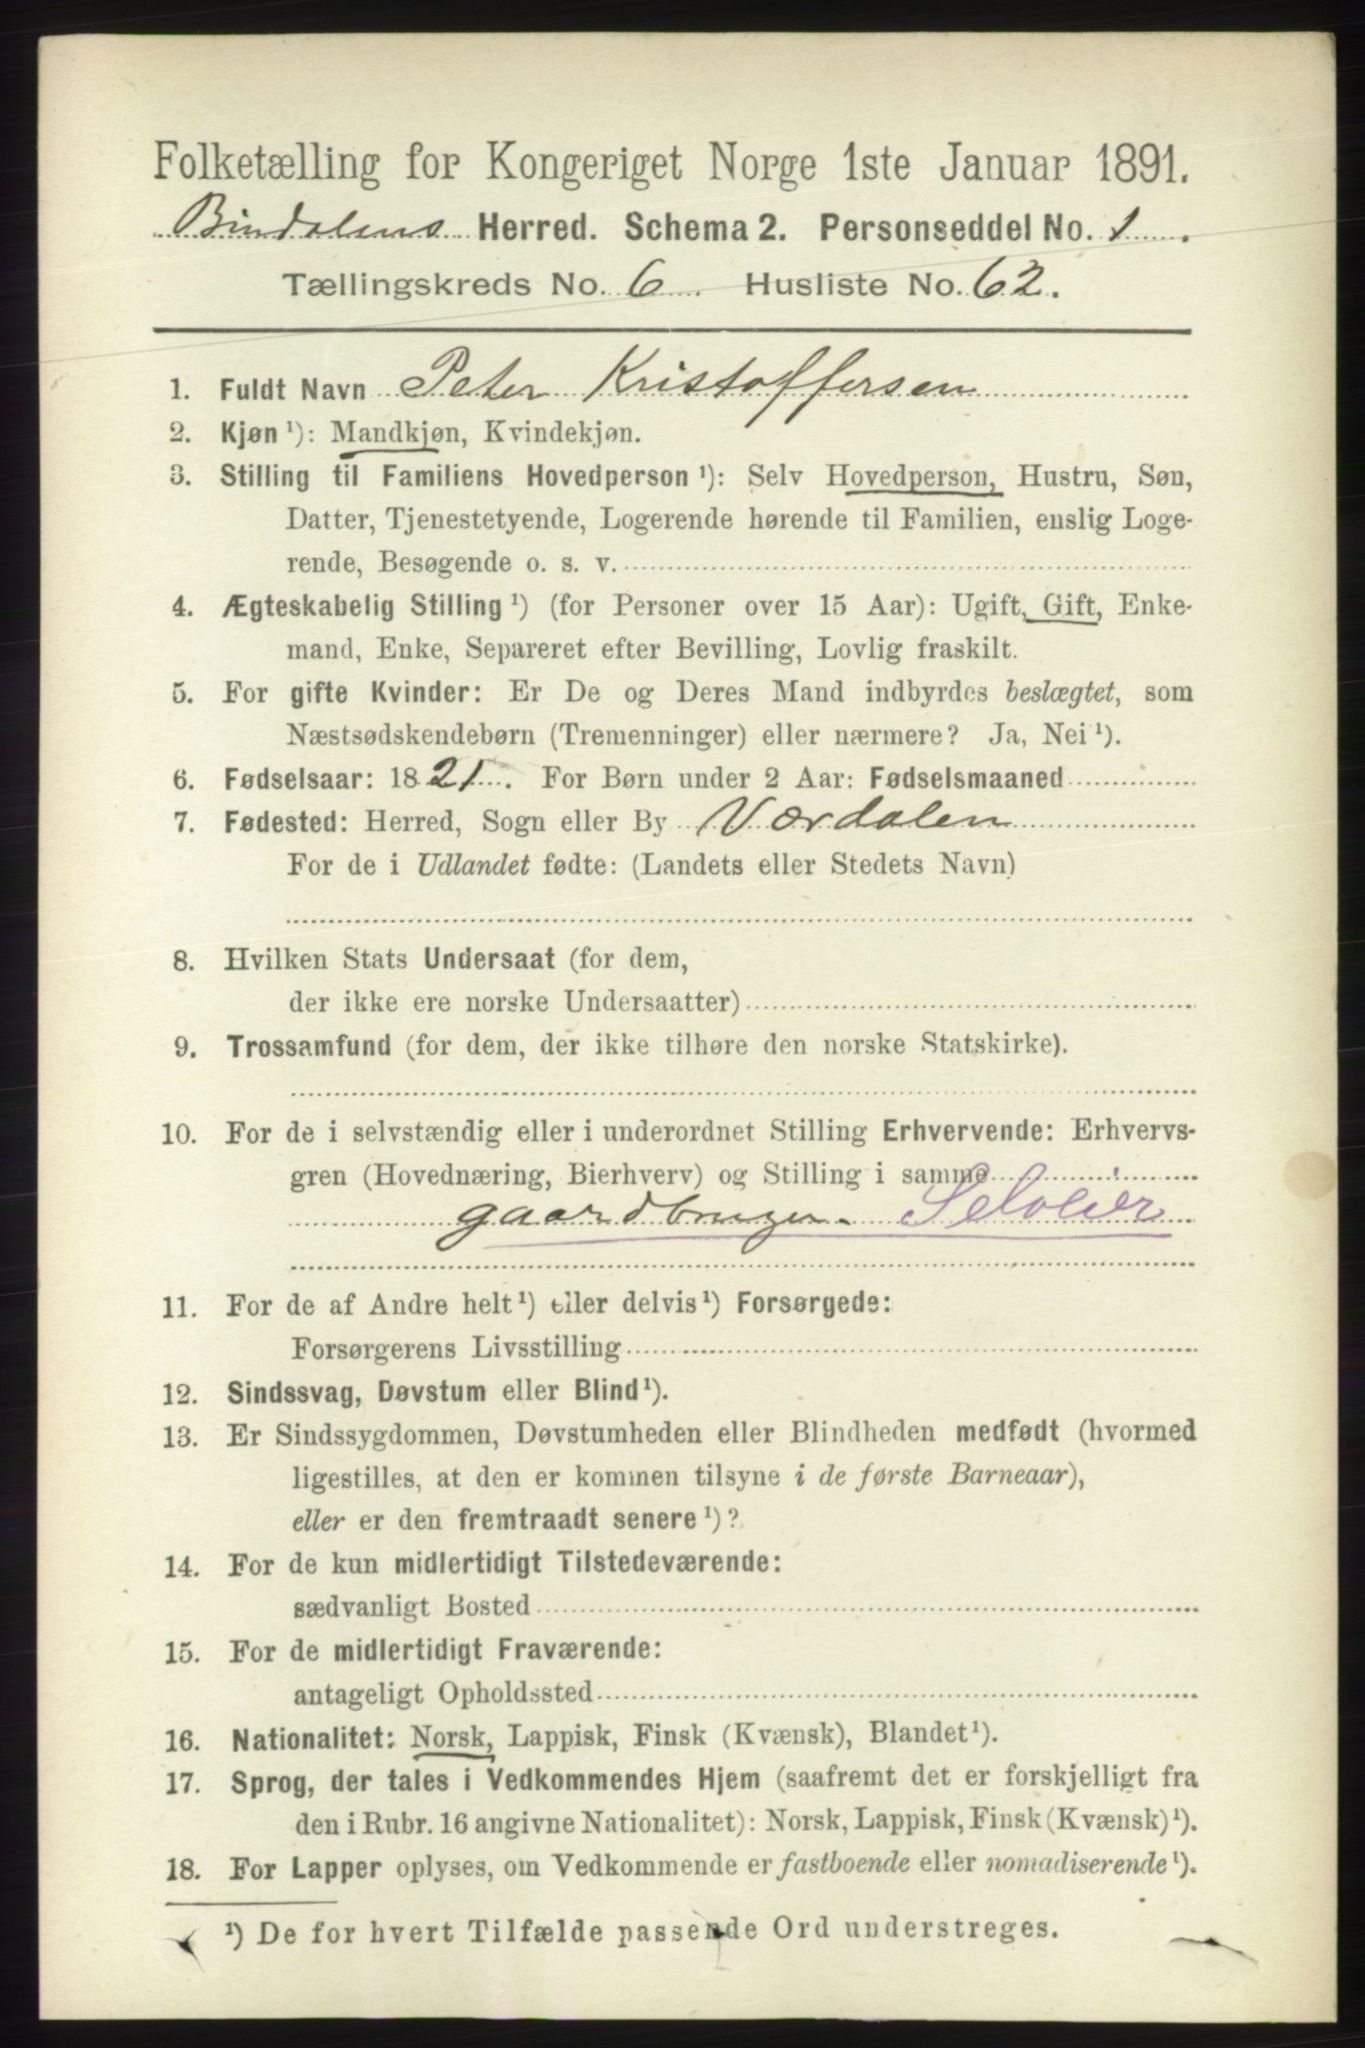 Folketælling for Kongeriget Norge 1ste Januar 1891.
Bindalens Herred. Schema 2. Personseddel No. 1.
Tællingskreds No. 6. Husliste No. 62.
1. Fuldt Navn Peter Kristoffersen
2. Kjøn ¹): Mandkjøn, Kvindekjøn.
3. Stilling til Familiens Hovedperson ¹): Selv Hovedperson, Hustru, Søn,
Datter, Tjenestetyende, Logerende hørende til Familien, enslig Loge-
rende, Besøgende o. s. v.
4. Ægteskabelig Stilling ¹) (for Personer over 15 Aar): Ugift, Gift, Enke-
mand, Enke, Separeret efter Bevilling, Lovlig fraskilt.
5. For gifte Kvinder: Er De og Deres Mand indbyrdes beslægtet, som
Næstsødskendebørn (Tremenninger) eller nærmere? Ja, Nei ¹).
6. Fødselsaar: 1821. For Børn under 2 Aar: Fødselsmaaned
7. Fødested: Herred, Sogn eller By Værdalen
For de i Udlandet fødte: (Landets eller Stedets Navn)
8. Hvilken Stats Undersaat (for dem,
der ikke ere norske Undersaatter)
9. Trossamfund (for dem, der ikke tilhøre den norske Statskirke).
10. For de i selvstændig eller i underordnet Stilling Erhvervende: Erhvervs-
gren (Hovednæring, Bierhverv) og Stilling i samme
gaardbruger. Seloeier
11. For de af Andre helt ¹) eller delvis ¹) Forsørgede:
Forsørgerens Livsstilling
12. Sindssvag, Døvstum eller Blind ¹).
13. Er Sindssygdommen, Døvstumheden eller Blindheden medfødt (hvormed
ligestilles, at den er kommen tilsyne i de første Barneaar),
eller er den fremtraadt senere ¹)?
14. For de kun midlertidigt Tilstedeværende:
sædvanligt Bosted
15. For de midlertidigt Fraværende:
antageligt Opholdssted
16. Nationalitet: Norsk, Lappisk, Finsk (Kvænsk), Blandet ¹).
17. Sprog, der tales i Vedkommendes Hjem (saafremt det er forskjelligt fra
den i Rubr. 16 angivne Nationalitet): Norsk, Lappisk, Finsk (Kvænsk) ¹).
18. For Lapper oplyses, om Vedkommende er fastboende eller nomadiserende ¹).
¹) De for hvert Tilfælde passende Ord understreges.